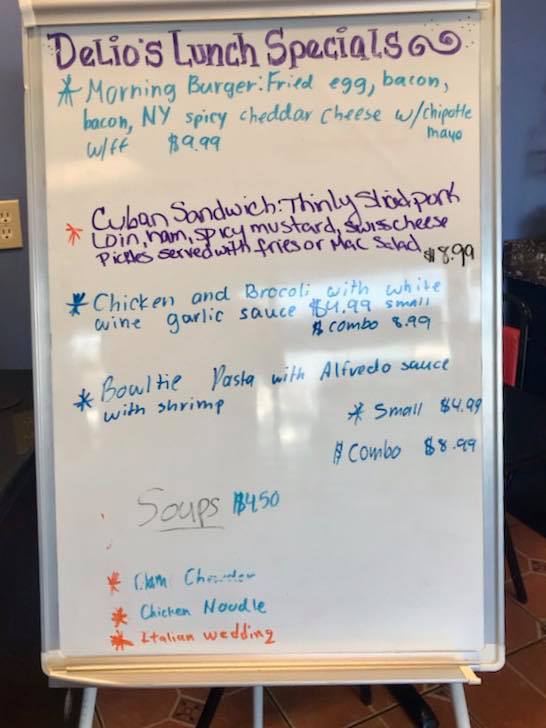 Delio's Lunch Specials
* Morning Burger: Fried egg, bacon,
bacon, NY spicy cheddar cheese w/chipotle
mayo
w/ff $9.99
* Cuban Sandwich: Thinly Sliced pork
Loin, ham, spicy mustard, swiss cheese
Pickles served with fries or Mac Salad $8.99
* Chicken and Brocoli with white
wine garlic sauce $4.99 small
$ combo 8.99
* Bowltie Pasta with Alfredo sauce
with shrimp
* Small $4.99
$ Combo $8.99
Soups $4.50
* Clam Chowder
* Chicken Noudle
* Italian wedding